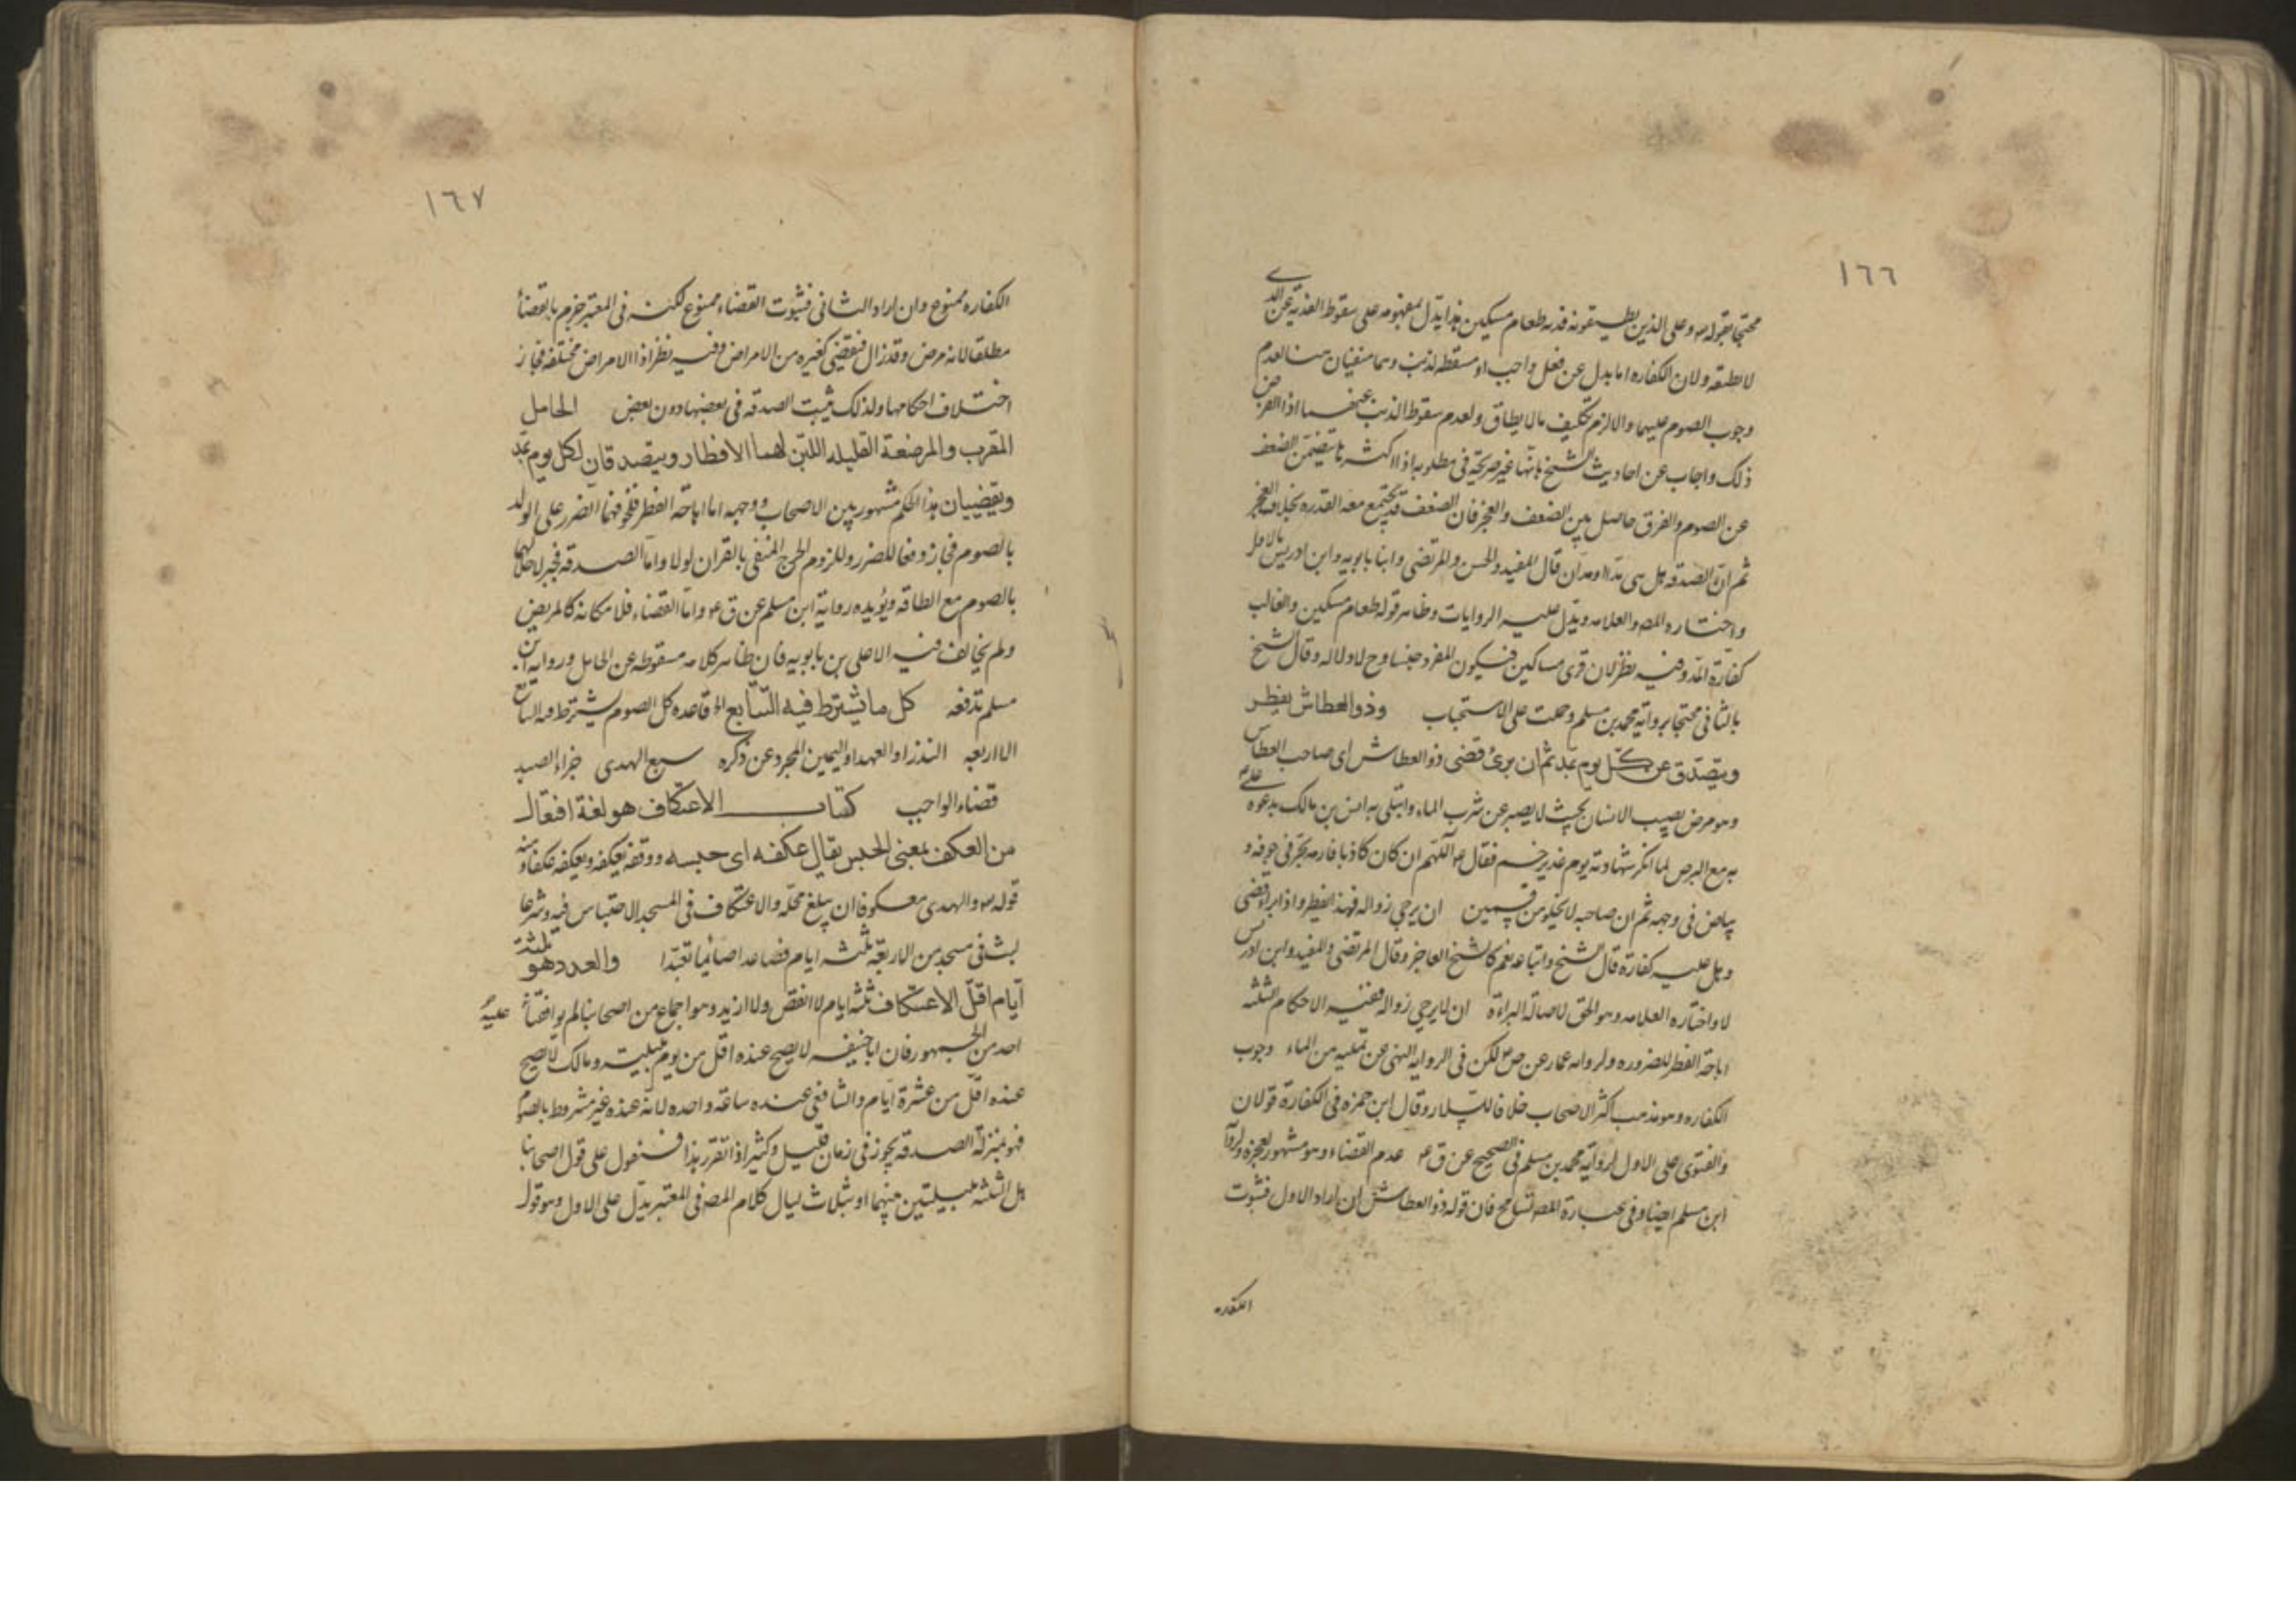 ١٦٦
محتجا بقوله تع وعلى الذين يطيقونه فدية طعام مسكين هذا يدل بمفهومه على سقوط الفدية عن الذي
لا يطيقه ولان الكفاره اما بدل عن فعل واجب او مسقطه لذنب وهما منفيان هنا لعدم
وجوب الصوم عليهما والا لزم تكليف ما لا يطاق ولعدم سقوط الذنب عنهما اذ الفرض
ذلك واجاب عن احاديث الشيخ بانها غير صريحة في مطلوبه اذ اكثرها يتضمن الضعف
عن الصوم والفرق حاصل بين الضعف والعجز فان الضعف قد يجتمع معه القدره بخلاف العجز
ثم ان الصدقه هل هي مد او مدان قال المفيد والحسن والمرتضى وابنا بابويه وابن ادريس بالاول
واختاره المص والعلامه ويدل عليه الروايات وظاهر قوله طعام مسكين والغالب
كفارة المد وفيه نظر لان قرى مساكين فيكون المفرد جنسا وح لا دلاله وقال الشيخ
بالثاني محتجا برواية محمد بن مسلم وحملت على الاستحباب وذو العطاش يفطر
ويتصدق عن كل يوم بمد ثم ان برئ قضى ذو العطاش اى صاحب العطاش
وهو مرض يصيب الانسان بحيث لا يصبر عن شرب الماء وابتلى به انس بن مالك بدعوة علي
به مع البرص لما انكر شهادته يوم غدير خم فقال ع اللهم ان كان كاذبا فارمه بحر في جوفه و
بياض في وجهه ثم ان صاحبه لا يخلو من قسمين ان يرجى زواله فهذا يفطر واذا برا قضى
وهل عليه كفارة قال الشيخ واتباعه نعم كالشيخ العاجز وقال المرتضى والمفيد وابن ادريس
لا واختاره العلامه وهو الحق لاصالة البراءة ان لا يرجى زواله ففيه الاحكام الثلثه
اباحة الفطر للضروره ولرواية عمار عن ص ع لكن في الرواية النهى عن تمليه من الماء وجوب
الكفاره وهو مذهب اكثر الاصحاب خلافا لسلار وقال ابن حمزه في الكفارة قولان
والفتوى على الاول لرواية محمد بن مسلم في الصحيح عن ق ع عدم القضاء وهو مشهور لعجزه ولرواية
ابن مسلم ايضا وفي عبارة المص تسامح فان قوله ذو العطاش ان اراد الاول فثبوت
الكفاره
١٦٧
الكفاره ممنوع وان اراد الثاني فثبوت القضاء ممنوع لكنه في المعتبر جزم بالقضاء
مطلقا لانه مرض وقد زال فيقضى كغيره من الامراض وفيه نظر اذ الامراض مختلفه فجاز
اختلاف احكامها ولذلك يثبت الصدقه في بعضها دون بعض الحامل
المقرب والمرضعة القليله اللبن لهما الافطار ويتصدقان لكل يوم بمد
ويقضيان هذا الحكم مشهور بين الاصحاب ووجهه اما اباحة الفطر فلخوفهما الضرر على الولد
بالصوم فجاز دفعا للضرر وللزوم الحرج المنفى بالقران لولاه واما الصدقه فجبر لاخلالهما
بالصوم مع الطاقه ويؤيده رواية ابن مسلم عن ق ع واما القضاء فلامكانه كالمريض
ولم يخالف فيه الا على بن بابويه فان ظاهر كلامه سقوطه عن الحامل ورواية ابن
مسلم تدفعه كل ما يشترط فيه التتابع الخ قاعده كل الصوم يشترط فيه التتابع
الا اربعه النذر او العهد او اليمين المجرد عن ذكره سبع الهدى جزاء الصيد
قضاء الواجب كتاب الاعتكاف هو لغة افتعال
من العكف بمعنى الحبس يقال عكفه اى حبسه ووقفه يعكفه ويعكفه عكفا ومنه
قوله تع والهدى معكوفا ان يبلغ محله والاعتكاف في المسجد الاحتباس فيه وشرعا
لبث في مسجد من الاربعة ثلثه ايام فصاعدا صائما تعبدا والعدد هو ثلثة
ايام اقل الاعتكاف ثلثه ايام لا انقص ولا ازيد وهو اجماع من اصحابنا لم يوافقنا عليه
احد من الجمهور فان ابا حنيفه لا يصح عنده اقل من يوم بليلته ومالك لا يصح
عنده اقل من عشرة ايام والشافعي عنده ساعة واحده لانه عنده غير مشروط بالصوم
فهو بمنزلة الصدقه يجوز في زمان قليل وكثير اذا تقرر هذا فنقول على قول اصحابنا
هل الثلثه بليلتين بينهما او بثلاث ليال كلام المص في المعتبر يدل على الاول وهو قول